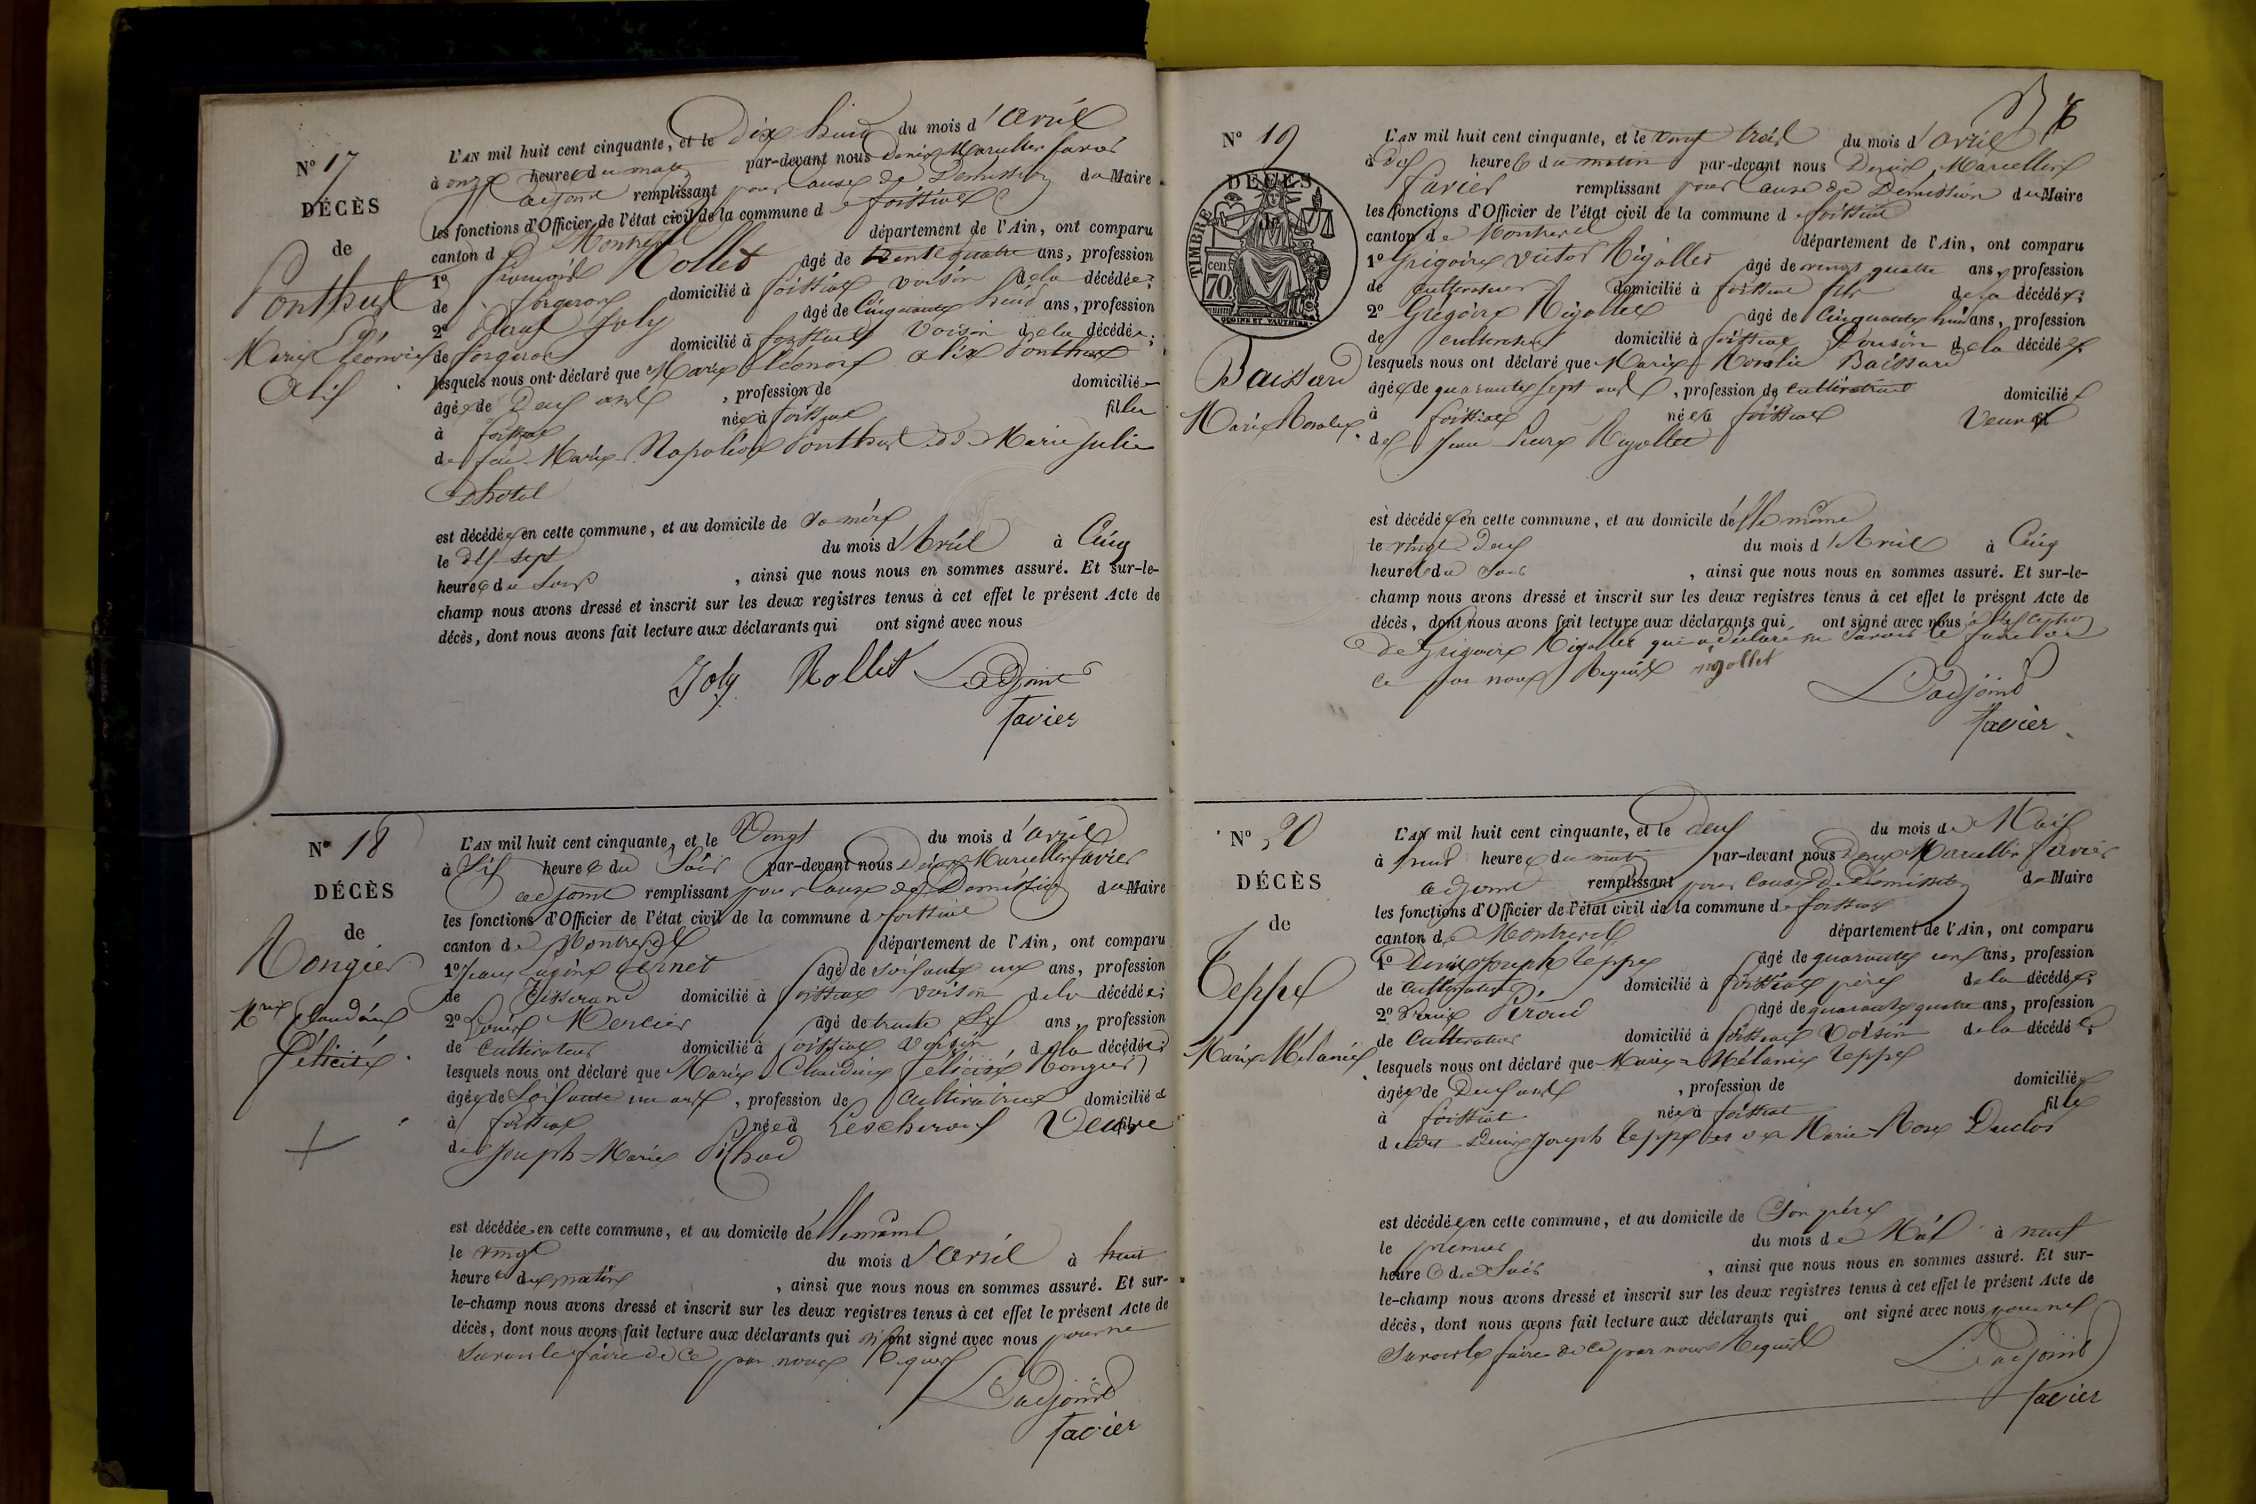 N° 17
DÉCÈS
de
Ponthus
Marie Eléonore
Alix
L'AN mil huit cent cinquante, et le Dix huit du mois d'Avril
à onze heures du matin par-devant nous Denis Marcellin favier
adjoint remplissant pour cause de Démission du Maire
les fonctions d'Officier de l'état civil de la commune de foissiat
canton de Montrevel département de l'Ain, ont comparu
1° Rollet âgé de trente quatre ans, profession
de forgeron domicilié à foissiat voisin de la décédée;
2° Joly âgé de Cinquante huit ans, profession
de forgeron domicilié à foissiat voisin de la décédée;
lesquels nous ont déclaré que Marie Eléonore alix Ponthus
âgée de Deux ans, profession de domiciliée
à foissiat née à foissiat fille
de feu Marie Napoléon Ponthus et de Marie Julie
est décédée en cette commune, et au domicile de sa mère
le dix sept du mois d'Avril à Cinq
heures du soir, ainsi que nous nous en sommes assuré. Et sur-le-
champ nous avons dressé et inscrit sur les deux registres tenus à cet effet le présent Acte de
décès, dont nous avons fait lecture aux déclarants qui ont signé avec nous
Joly Rollet L'adjoint
favier
N° 18
DÉCÈS
de
Rongier
Mrie Claudine
Félicité
L'AN mil huit cent cinquante, et le Vingt du mois d'avril
à Six heures du Soir par-devant nous Denis Marcellin favier
adjoint remplissant pour cause de Démission du Maire
les fonctions d'Officier de l'état civil de la commune de foissiat
canton de Montrevel département de l'Ain, ont comparu
1° âgé de Soixante un ans, profession
de Tisserand domicilié à foissiat voisin de la décédée;
2° Louis Mercier âgé de trente Six ans, profession
de Cultivateur domicilié à foissiat Voisin de la décédée;
lesquels nous ont déclaré que Marie Claudine Félicité Rongier
âgée de Soixante un ans, profession de Cultivatrice domiciliée
à foissiat née à Lescheroux Veuve
de Joseph Marie
est décédée en cette commune, et au domicile d'elle même
le vingt du mois d'avril à huit
heures du matin, ainsi que nous nous en sommes assuré. Et sur-
le-champ nous avons dressé et inscrit sur les deux registres tenus à cet effet le présent Acte de
décès, dont nous avons fait lecture aux déclarants qui n'ont signé avec nous pour ne
Savoir le faire de ce par nous Requis
L'adjoint
favier
N° 19
DÉCÈS
de
TIMBRE
cen. 70
Baissard
Marie Rosalie
L'AN mil huit cent cinquante, et le vingt trois du mois d'avril
à dix heures du matin par-devant nous Denis Marcellin
favier remplissant pour cause de Démission du Maire
les fonctions d'Officier de l'état civil de la commune de foissiat
canton de Montrevel département de l'Ain, ont comparu
1° Grégoire Victor Rigollet âgé de vingt quatre ans, profession
de cultivateur domicilié à foissiat fils de la décédée;
2° Grégoire Rigollet âgé de Cinquante huit ans, profession
de cultivateur domicilié à foissiat Cousin de la décédée
lesquels nous ont déclaré que Marie Rosalie Baissard
âgée de quarante sept ans, profession de cultivatrice domiciliée
à foissiat née à foissiat Veuve
de Jean Pierre Rigollet
est décédée en cette commune, et au domicile d'elle même
le vingt Deux du mois d'Avril à Cinq
heures du Soir, ainsi que nous nous en sommes assuré. Et sur-le-
champ nous avons dressé et inscrit sur les deux registres tenus à cet effet le présent Acte de
décès, dont nous avons fait lecture aux déclarants qui ont signé avec nous à l'exception
de Grégoire Rigollet qui a déclaré ne Savoir le faire de
ce par nous Requis rigollet
L'adjoint
favier
N° 20
DÉCÈS
de
Teppe
Marie Mélanie
L'AN mil huit cent cinquante, et le deux du mois de Mai
à huit heures du matin par-devant nous Denis Marcellin favier
adjoint remplissant pour Cause de Démission du Maire
les fonctions d'Officier de l'état civil de la commune de foissiat
canton de Montrevel département de l'Ain, ont comparu
1° Denis Joseph Teppe âgé de quarante ans, profession
de Cultivateur domicilié à foissiat père de la décédée;
2° Piroud âgé de quarante quatre ans, profession
de Cultivateur domicilié à foissiat Voisin de la décédée;
lesquels nous ont déclaré que Marie Mélanie Teppe
âgée de Deux ans, profession de domiciliée
à foissiat née à foissiat fille
de Denis Joseph Teppe et de Marie Rose Duclos
est décédée en cette commune, et au domicile de Son père
le premier du mois de Mai à neuf
heures du Soir, ainsi que nous nous en sommes assuré. Et sur-
le-champ nous avons dressé et inscrit sur les deux registres tenus à cet effet le présent Acte de
décès, dont nous avons fait lecture aux déclarants qui ont signé avec nous pour ne
Savoir le faire de ce par nous Requis
L'adjoint
favier